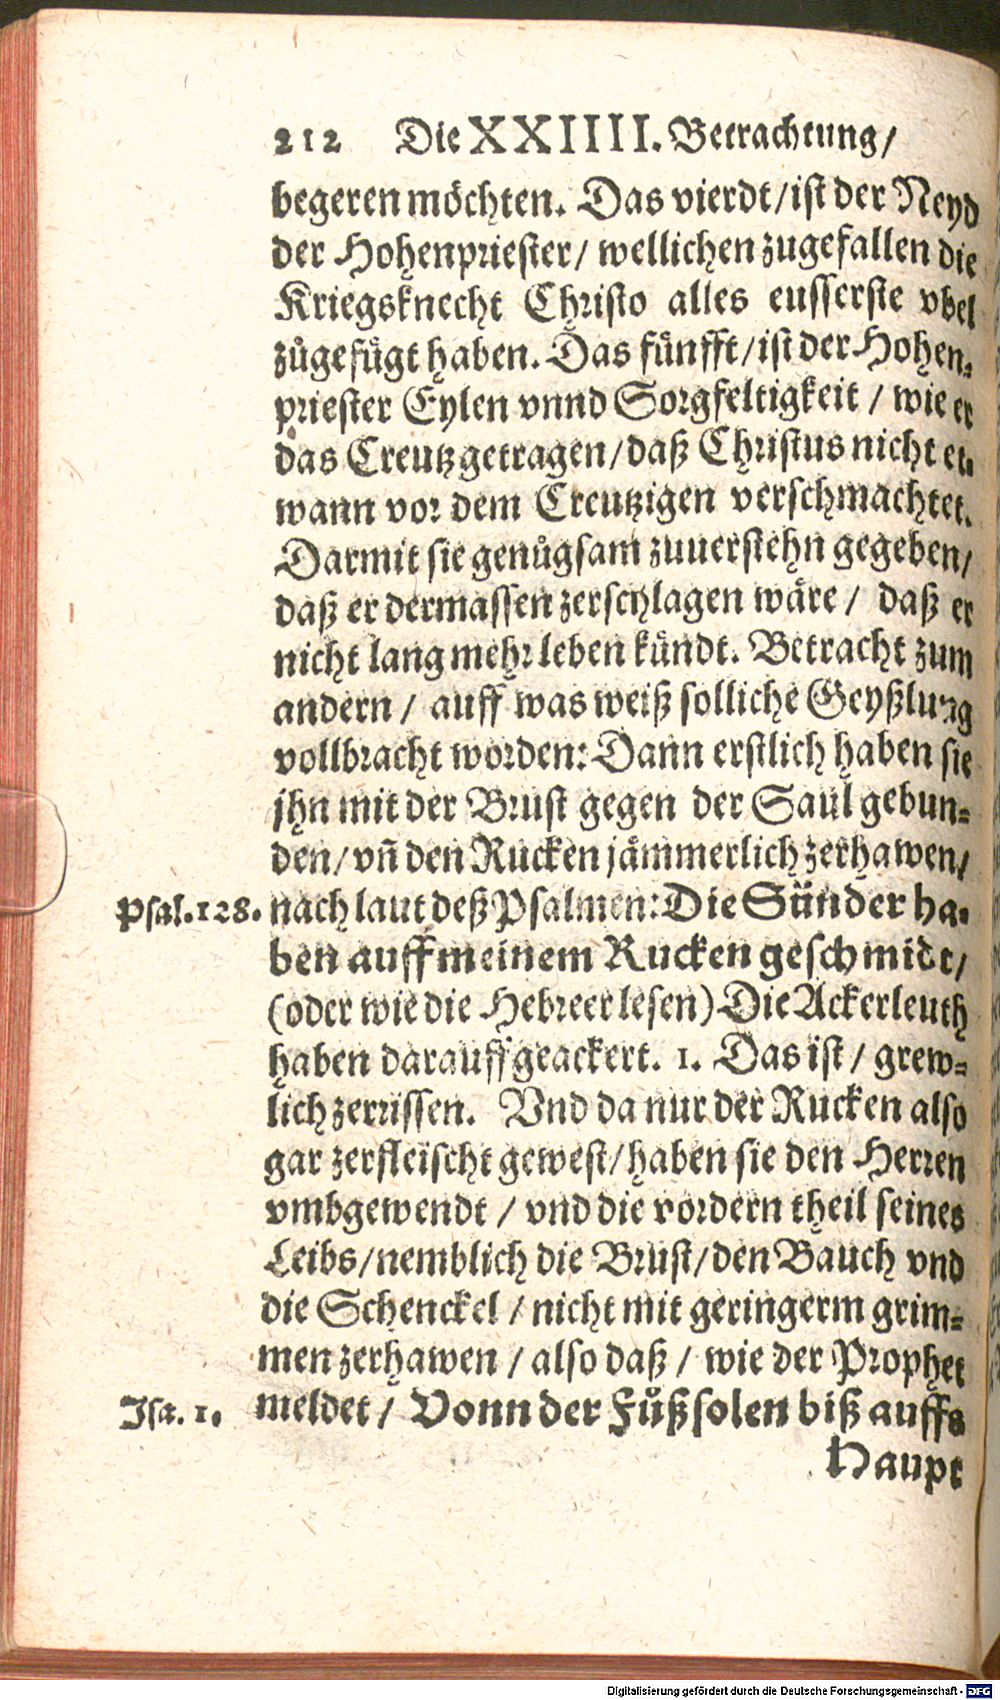 212 Die XXIIII. Betrachtung/
begeren möchten. Das vierdt/ist der Neyd
der Hohenpriester/ wellichen zugefallen die
Kriegsknecht Christo alles eusserste vbel
zůgefůgt haben. Das fünfft/ist der Hohen-
priester Eylen vnnd Sorgfeltigkeit / wie er
das Creutz getragen/daß Christus nicht et-
wann vor dem Creutzigen verschmachtet.
Darmit sie genůgsam zuuerstehn gegeben/
daß er dermassen zerschlagen wäre / daß er
nicht lang mehr leben kündt. Betracht zum
andern / auff was weiß solliche Geyßlung
vollbracht worden: Dann erstlich haben sie
jhn mit der Brust gegen der Saul gebun-
den/vñ den Rucken jämmerlich zerhawen/
Psal.128. nach laut deß Psalmen: Die Sünder ha-
ben auff meinem Rucken geschmidt/
(oder wie die Hebreer lesen) Die Ackerleuth
haben darauff geackert. 1. Das ist / grew-
lich zerrissen. Vnd da nur der Rucken also
gar zerfleischt gewest/haben sie den Herren
vmbgewendt / vnd die vordern theil seines
Leibs/nemblich die Brust/den Bauch vnd
die Schenckel / nicht mit geringerm grim-
men zerhawen / also daß / wie der Prophet
Isa. 1. meldet / Vonn der Fůßsolen biß auffs
Haupt
Digitalisierung gefördert durch die Deutsche Forschungsgemeinschaft - DFG